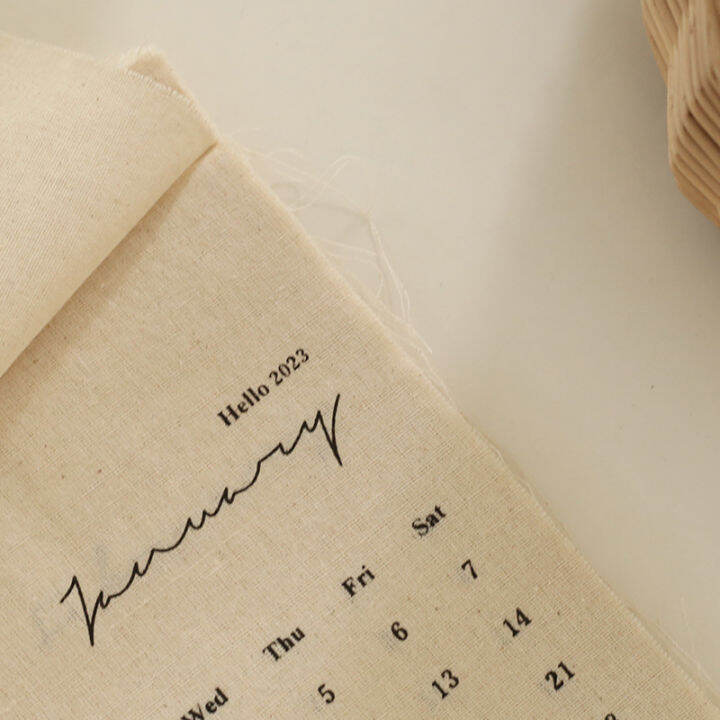 Hello 2023
January
Wed Thu Fri Sat
5 6 7
13 14
21